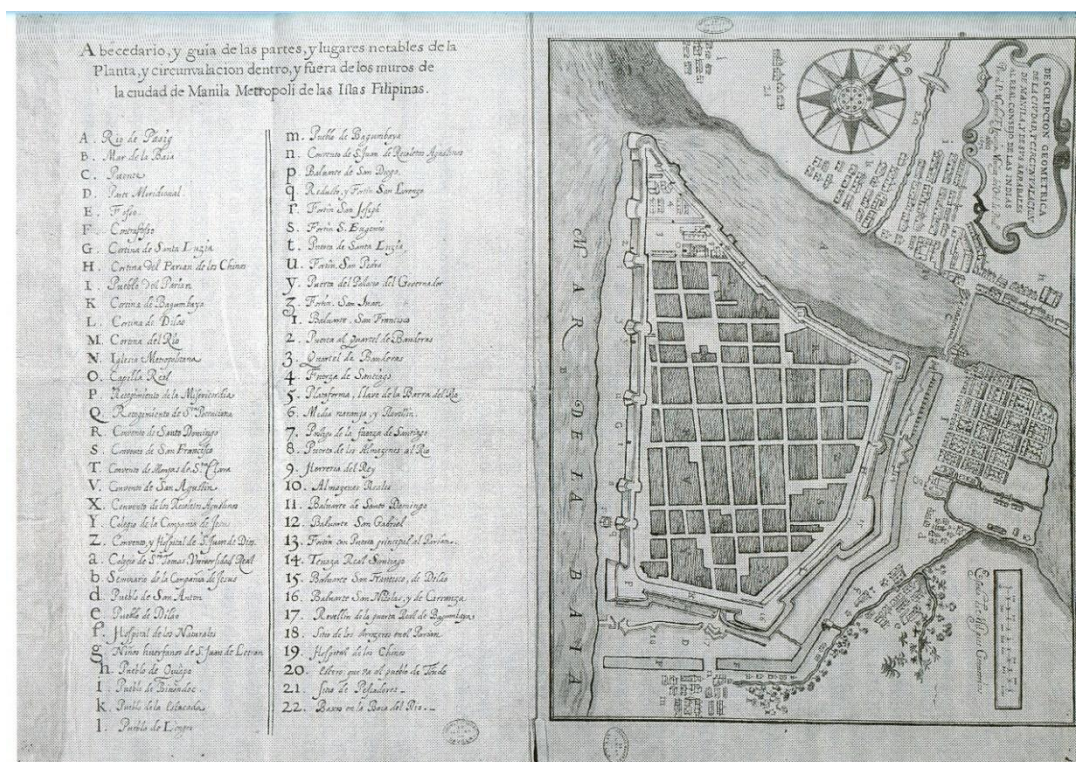 Abecedario, y guia de las partes, y lugares notables de la
Planta, y circunvalacion dentro, y fuera de los muros de
la ciudad de Manila Metropoli de las Islas Filipinas.
A. Rio de Pasig
B. Mar de la Baia
C. Puente
D. Meridional
E. Fosso
F. Contrafosso
G. Cortina de Santa Luzia
H. Cortina del Parian de los Chinos
I. Pueblo del Parian
K. Cortina de Bagumbaya
L. Cortina de Dilao
M. Cortina del Rio
N. Iglesia Metropolitana
O. Capilla Real
P. Recogimiento de la Misericordia
Q. Recogimiento de Sta Potenciana
R. Convento de Santo Domingo
S. Convento de San Francisco
T. Convento de Monjas de Sta Clara
V. Convento de San Agustin
X. Convento de los Recoletos Agustinos
Y. Colegio de la Compania de Jesus
Z. Convento, y Hospital de S. Juan de Dios
a. Colegio de S. Tomas, Universidad Real
b. Seminario de la Compania de Jesus
d. Pueblo de San Anton
e. Pueblo de Dilao
f. Hospital de los Naturales
g. Niños huerfanos de S. Juan de Letran
h. Pueblo de Quiapo
i. Pueblo de Binondoc
k. Pueblo de la Estacada
l. Pueblo de
m. Pueblo de Bagumbaya
n. Convento de S. Juan de Recoletos Agustinos
p. Baluarte de San Diego
q. Reducto, y Fortin San Lorenzo
r. Fortin San Joseph
s. Fortin S. Eugenio
t. Puerta de Santa Luzia
u. Fortin San Pedro
y. Puerta del Palacio del Governador
z. Fortin San Juan
1. Baluarte San Francisco
2. Puerta al quartel de Banderas
3. Quartel de Banderas
4. Fuerza de Santiago
5. Plataforma, llave de la Barra del Rio
6. Media naranja, y Revellin
7. de la fuerza de Santiago
8. Puerta de los Almagenes al Rio
9. Herreria del Rey
10. Almagenes Reales
11. Baluarte de Santo Domingo
12. Baluarte San Gabriel
13. Fortin con Puerta principal al Parian
14. Tenaza Real Santiago
15. Baluarte San Francisco, de Dilao
16. Baluarte San Nicolas, y de Carranza
17. Revellin de la puerta Real de Bagumbaya
18. Sitio de los en el Parian
19. Hospital de los Chinos
20. Estero que va al pueblo de Tondo
21. Isla de Pescadores
22. Baxos en la Boca del Rio
DESCRIPCION GEOMETRICA
DE LA CIUDAD, Y CIRCUNVALACION
DE MANILA, Y DE SUS ARRABALES
AL REAL CONSEJO DE LAS INDIAS
MAR DE LA BAIA